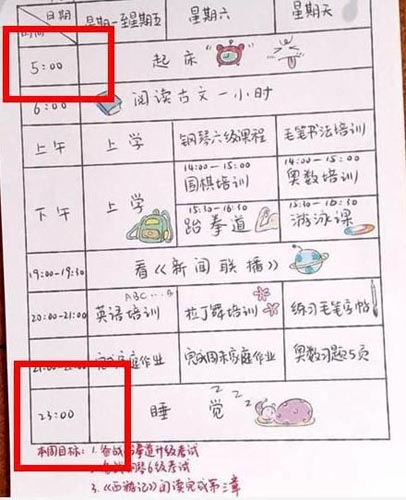 日期 星期一至星期五 星期六 星期天
时间
5:00 起床
6:00 阅读古文一小时
上午 上学 钢琴六级课程 毛笔书法培训
下午 上学 14:00-15:00 14:00-15:00
围棋培训 奥数培训
15:10-16:30 15:10-16:30
跆拳道 游泳课
19:00-19:30 看《新闻联播》
ABC
20:00-21:00 英语培训 拉丁舞培训 练习毛笔字帖
完成家庭作业 完成周末家庭作业 奥数习题5页
23:00 睡觉 zzz
本周目标: 1. 备战跆拳道升级考试
6级考试
3.《西游记》阅读完成第三章